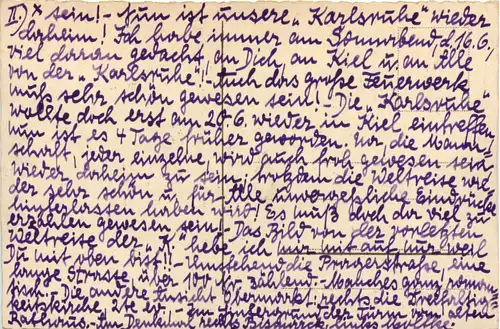 II.) x sein! - Nun ist unsere „Karlsruhe" wieder
daheim! Ich habe immer am Sonnabend, d. 16.6,
viel daran gedacht, an Dich, an Kiel u. an Alle
von der „Karlsruhe"! Auch das große Feuerwerk
muß sehr schön gewesen sein! - Die „Karlsruhe"
wollte doch erst am 20.6. wieder in Kiel eintreffen,
nun ist es 4 Tage früher geworden. Nur, die Mann-
schaft, jeder einzelne, wird auch froh gewesen sein
wieder daheim zu sein, trotzdem die Weltreise wie-
der sehr schön u. für Alle unvergeßliche Eindrücke
hinterlassen haben wird! Es muß doch da viel zu
erzählen gewesen sein! - Das Bild von der vorletzten
Weltreise der „K." hebe ich mir mit auf, nur weil
Du mit oben bist!! - Umstehend die Pragerstraße, eine
lange Strasse über 100 Nr. zählend. Manches ganz roman-
tisch. Die andere Ansicht Obermarkt: rechts die Dreifaltig-
keitskirche, Im Hintergrund der Turm vom alten
Rathaus, - Im Denkmal rechts Bismarck